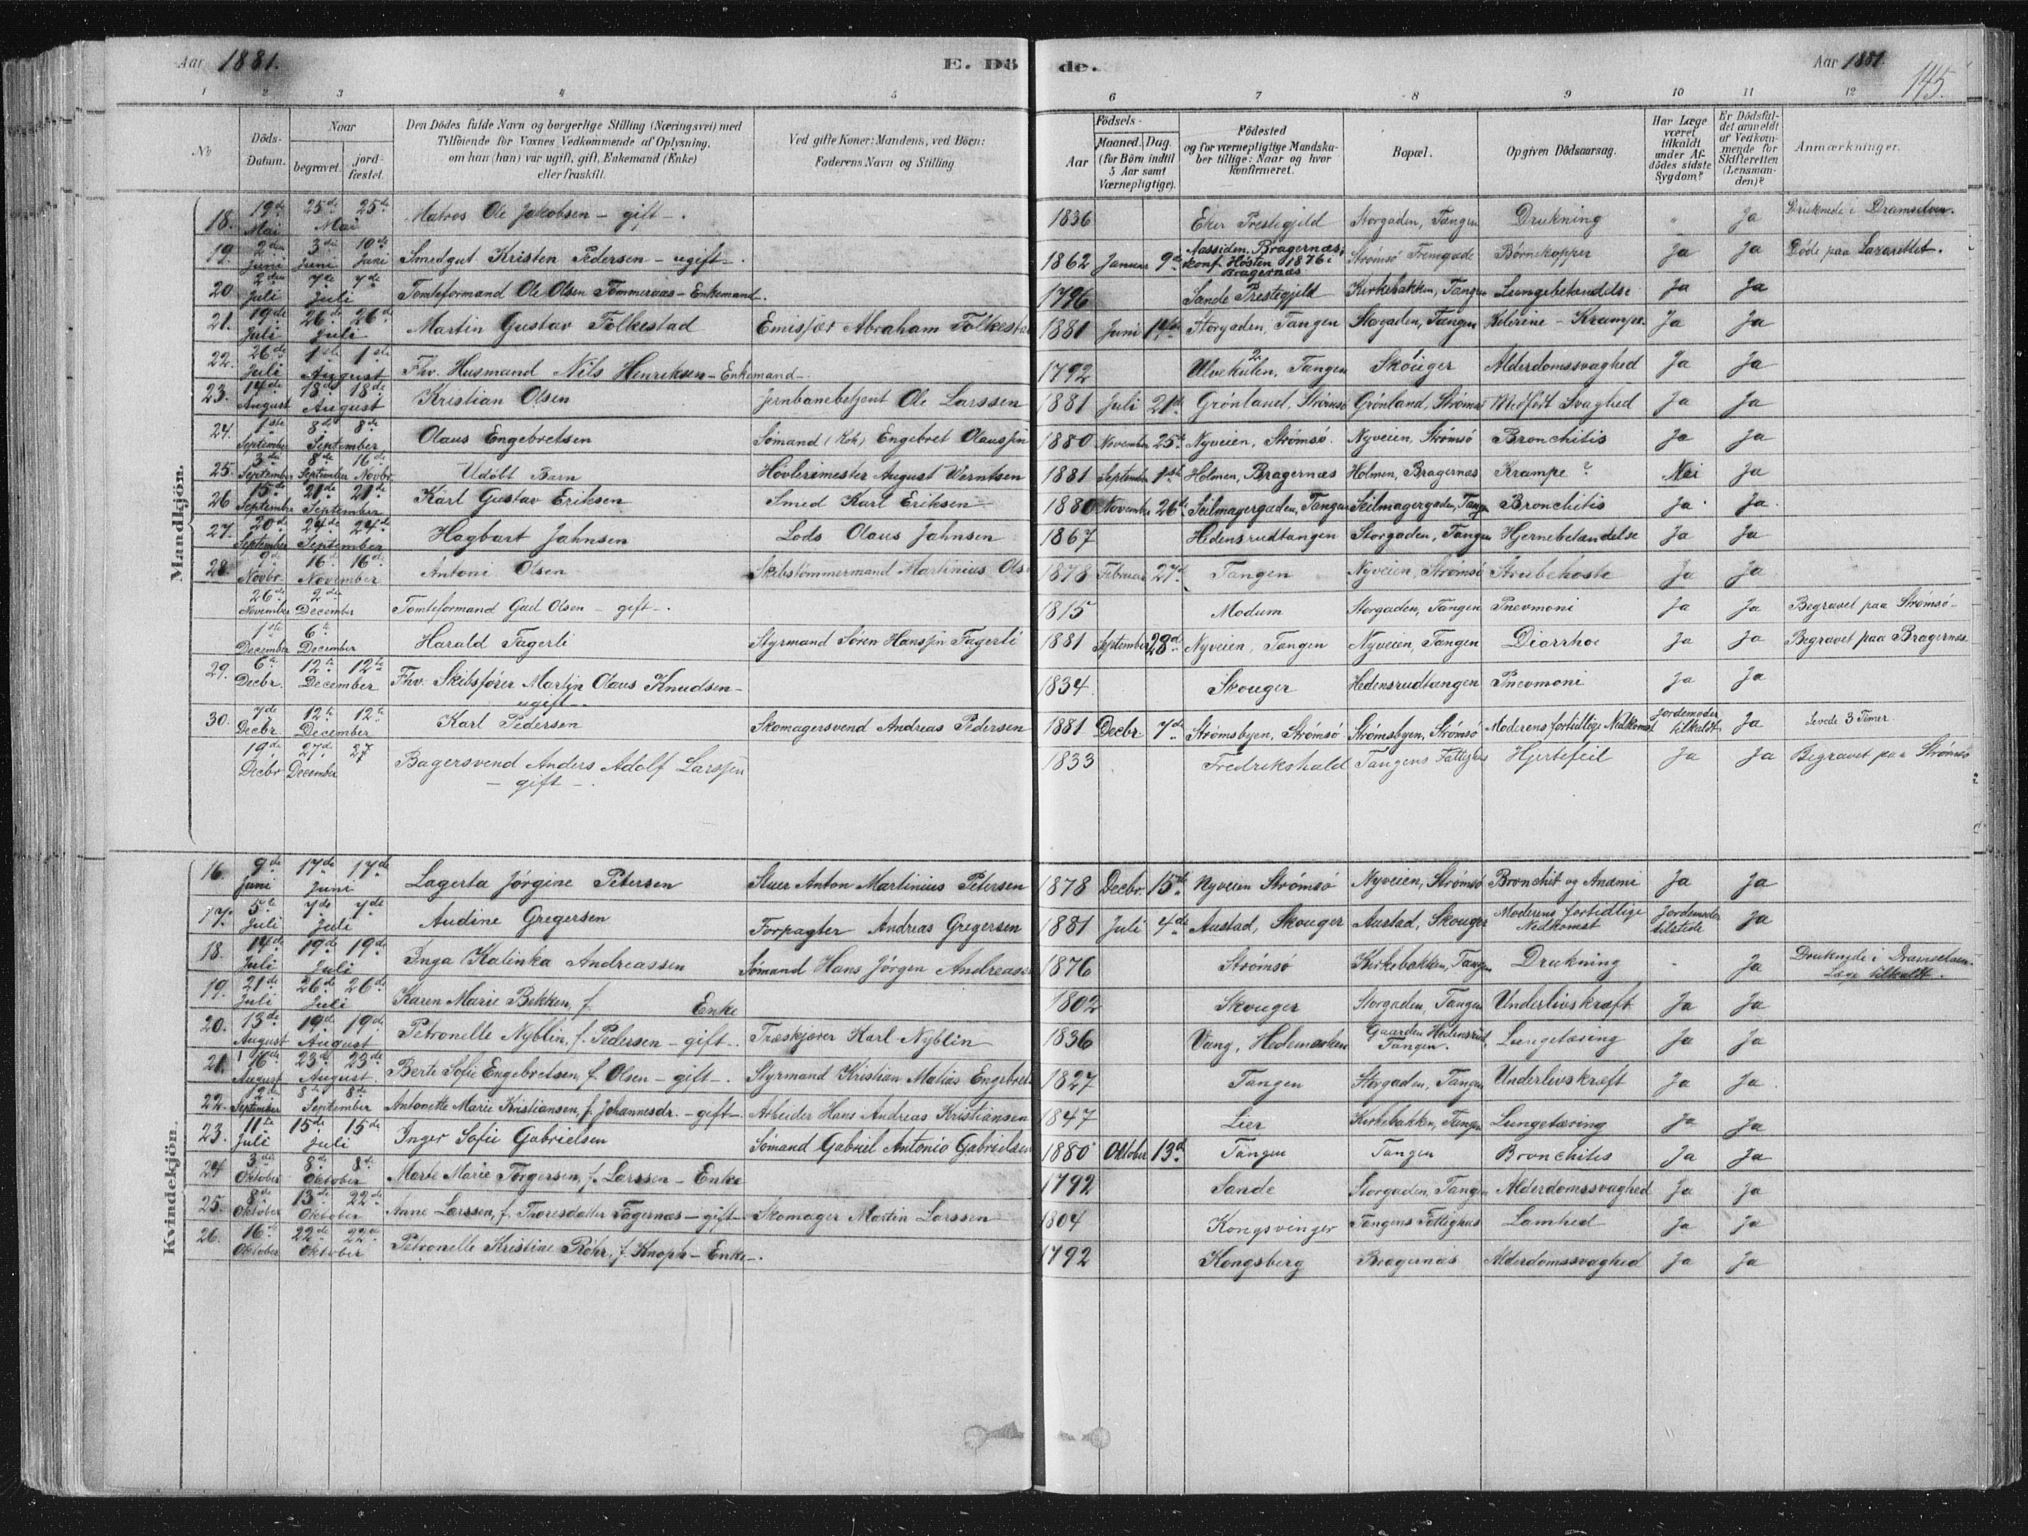 Aar 1881. E. Dö de. Aar 1881. 145.
1 2 3 4 5 6 7 8 9 10 11 12
№ Döds-Datum. Naar begravet. jordfæstet. Den Dödes fulde Navn og borgerlige Stilling (Næringsvei) med Tilföiende for Voxnes Vedkommende af Oplysning, om han (hun) var ugift, gift, Enkemand (Enke) eller fraskilt. Ved gifte Koner: Mandens, ved Börn: Faderens Navn og Stilling Födsels- Aar Maaned. Dag. (for Börn indtil 5 Aar samt Værnepligtige). Födested og for værnepligtige Mandskaber tillige: Naar og hvor konfirmeret. Bopæl. Opgiven Dödsaarsag. Har Læge været tilkaldt under Afdödes sidste Sygdom? Er Dödsfaldet anmeldt af Vedkommende for Skifteretten (Lensmanden)? Anmærkninger.
Mandkjön.
18. 19de Mai 25de Mai 25de Matros Ole Jakobsen – gift –. 1836 Eker Prestegjeld Storgaden, Tangen Drukning " Ja Druknede i Dramselven.
19. 2den Juni 3de Juni 10de Juni Smedgut Kristen Pedersen – ugift –. 1862 Januar 9de Aassiden, Bragernæs, konf. Høsten 1876 i Bragernæs Strømsø Tremgade Børnekopper Ja Ja Døde paa Lazarettet.
20. 2den Juli 7de Juli 7de Tomteformand Ole Olsen Tømmeraas – Enkemand. 1796 Sande Prestegjeld Kirkebakken, Tangen Lungebetændelse Ja Ja
21. 19de Juli 26de Juli 26de Martin Gustav Folkestad Emisjær Abraham Folkestad 1881 Juni 14de Storgaden, Tangen Storgaden, Tangen Kolerine – Krampe. Ja Ja
22. 26de Juli 1ste August 1ste Fhv. Husmand Nils Henriksen – Enkemand –. 1792 Ulvekulen, Tangen 2 Skouger 1 Alderdomssvaghed Ja Ja
23. 14de August 18de August 18de Kristian Olsen Jernbanebetjent Ole Larssen 1881 Juli 21de Grønland, Strømsø Grønland, Strømsø Medfødt Svaghed Ja Ja
24. 1ste September 8de September 8de Olaus Engebretsen Sømand (Kok) Engebret Olaussen 1880 November 25de Nyveien, Strømsø. Nyveien, Strømsø Bronchitis Ja Ja
25. 3de September 8de September 16de Novbr. Udøbt Barn Høvlerimester August Berntsen 1881 September 1ste Holmen, Bragernæs Holmen, Bragernæs Krampe? Nei Ja
26 15de September 21de September 21de Karl Gustav Eriksen Smed Karl Eriksen 1880 November 26de Seilmagergaden, Tangen Seilmagergaden, Tangen Bronchitis Ja Ja
27. 20de September 24de September 24de Hagbart Jahnsen Lods Olaus Jahnsen 1867 Hedensrudtangen Storgaden, Tangen Hjernebetændelse Ja Ja
28. 9de Novbr. 16de November 16de Antoni Olsen Skibstømmermand Martinius Olsen 1878 Februar 27de Tangen Nyveien, Strømsø Strubehoste Ja Ja
26de November 2den December Tomteformand Gud Olsen – gift –. 1815 Modum Storgaden, Tangen Pnevmoni Ja Ja Begravet paa Strømsø
1ste December 6te December Harald Fagerli Styrmand Søren Hanssen Fagerli 1881 September 28de Nyveien, Tangen Nyveien, Tangen Diarrhoe Ja Ja Begravet paa Bragernæs
29. 6te Decbr. 12te December 12te Fhv. Skibsfører Martin Olaus Knudsen – ugift –. 1834. Skouger Hedensrudtangen Pnevmoni Ja Ja
30. 7de Decbr 12te December 12te Karl Pedersen Skomagersvend Andreas Pedersen 1881 Decbr 7de Strømsbyen, Strømsø Strømsbyen, Strømsø Moderens fortidlige Nedkomst Jordemoder tilkaldt Ja Levede 3 Timer
19de Decbr 27de December 27 Bagersvend Anders Adolf Larssen – gift –. 1833 Fredrikshald Tangens Fattighus Hjertefeil Ja Ja Begravet paa Strømsø
Kvindekjön.
16. 9de Juni 17de Juni 17de Lagerta Jørgine Petersen Stuer Anton Martinius Petersen 1878 Decbr 15de Nyveien Strømsø Nyveien, Strømsø Bronchit og Anæmi Ja Ja
17. 5te Juli 7de Juli 7de Audine Gregersen Forpagter Andreas Gregersen 1881 Juli 4de Austad, Skouger Austad, Skouger Moderens fortidlige Nedkomst Jordemoder tilstede Ja
18. 14de Juli 19de Juli 19de Inga Kalinka Andreassen Sømand Hans Jørgen Andreassen 1876 Strømsø Kirkebakken, Tangen Drukning - Ja Druknede i Dramselven. Læge tilkaldt.
19. 21de Juli 26de Juli 26de Karen Marie Bikken, f. Enke 1802 Skouger Storgaden, Tangen Underlivskræft Ja Ja
20. 13de August 19de August 19de Petronelle Nyblin, f. Pedersen – gift –. Træskjærer Karl Nyblin 1836 Vang, Hedemarken Gaarden Hedensrud, Tangen. Lungetæring Ja Ja
21. 16de August 23de August 23de Berte Sofie Engebretsen, f. Olsen – gift –. Styrmand Kristian Matias Engebretsen 1827 Tangen Storgaden, Tangen Underlivskræft Ja Ja
22. 2den September 8de September 8de Antonette Marie Kristiansen, f. Johannesdr. – gift –. Arbeider Hans Andreas Kristiansen 1847 Lier Kirkebakken, Tangen Lungetæring Ja Ja
23. 11te Juli 15de Juli 15de Inger Sofie Gabrielsen Sømand Gabriel Antonio Gabrielsen 1880 Oktober 13de Tangen Tangen Bronchites Ja Ja
24 3die Oktober 8de Oktober 8de Marte Marie Torgersen, f. Larssen – Enke 1792 Sande Storgaden, Tangen Alderdomssvaghed Ja Ja
25. 8de Oktober 13de Oktober 22de Anne Larssen, f. Thoresdatter Fagernæs – gift –. Skomager Martin Larssen 1804 Kongsvinger Tangens Fattighus Lamhed Ja Ja
26. 16de Oktober 22de Oktober 22de Petronelle Kristine Röhr, f. Knoph – Enke –. 1792 Kongsberg Bragernæs Alderdomssvaghed Ja Ja